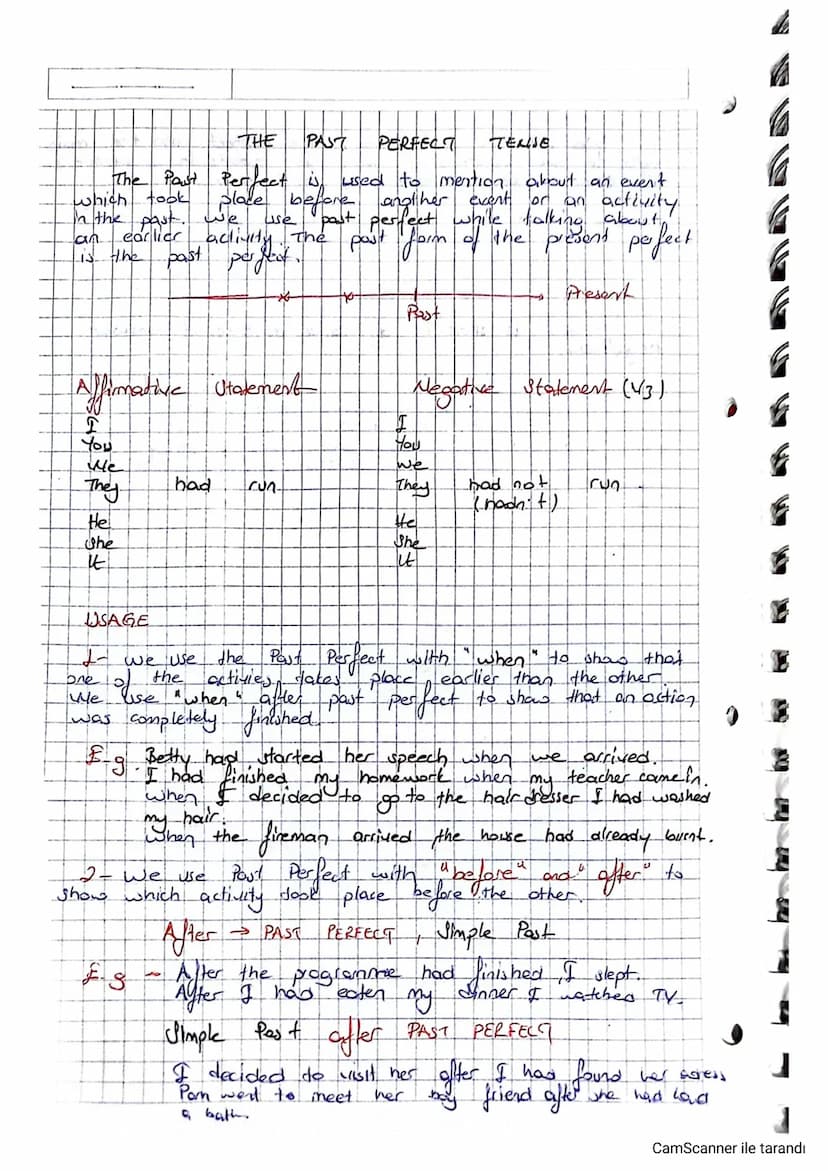 THE PAST PERFECT TENSE
The Past Perfect is used to mention about an event
which took place before another event or an activity
in the past. We use past perfect while talking about
an earlier activity. The past form of the present perfect
is the past perfect.
Present
Past
Affirmative Statement
Negative Statement (V3)
I
You
We
They had run
He
She
It
I
You
We
They had not run
(hadn't)
He
She
It
USAGE
1- We use the Past Perfect with "when" to show that
one of the activies takes place earlier than the other.
We use "when" after past perfect to show that an action
was completely finished.
E.g Betty had started her speech when we arrived.
I had finished my homework when my teacher came in.
When I decided to go to the hairdresser I had washed
my hair.
When the fireman arrived the house had already burnt.
2- We use Past Perfect with "before" and "after" to
show which activity took place before the other.
After → PAST PERFECT, Simple Past
E.g - After the programme had finished, I slept.
After I had eaten my dinner I watched TV.
Simple Past after PAST PERFECT
I decided to visit her after I had found her
Pam went to meet her boy friend after she had had
a bath.
CamScanner ile tarandı